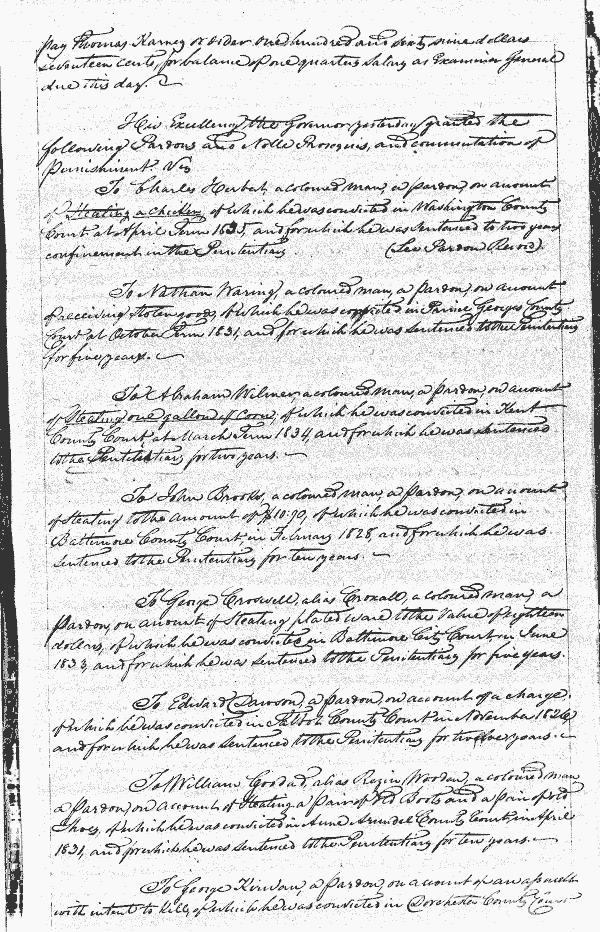 pay Thomas Karney or order One hundred and sixty nine dollars
seventeen cents, for balance of one quarters Salary as Examiner General
due this day.
His Excellency the Governor yesterday granted the
following Pardons and Nolle Prosequis, and commutation of
Punishment. Viz
To Charles Herbert, a coloured man, a pardon, on account
of Stealing a chicken, of which he was convicted in Washington County
Court at April Term 1835, and for which he was sentenced to two years
confinement in the Penitentiary (See Pardon Record).
To Nathan Waring, a coloured man, a pardon, on account
of receiving stolen goods, of which he was convicted in Prince Georges County
Court at October Term 1831, and for which he was sentenced to the Penitentiary
for five years.
To Abraham Wilmer, a coloured man, a pardon, on account
of Stealing one gallon of Corn, of which he was convicted in Kent
County Court at March Term 1834, and for which he was sentenced
to the Penitentiary for two years.
To John Brooks, a coloured man, a Pardon, on account
of Stealing to the amount of $10.90, of which he was convicted in
Baltimore County Court in February 1828, and for which he was
sentenced to the Penitentiary for ten years.
To George Croswell, alias Croxall, a coloured man, a
Pardon, on account of Stealing plated ware to the value of eighteen
dollars, of which he was convicted in Baltimore City Court in June
1833, and for which he was sentenced to the Penitentiary for five years.
To Edward Dawson, a pardon, on account of a charge,
of which he was convicted in Talbot County Court in November 1826,
and for which he was sentenced to the Penitentiary for twelve years.
To William Goodad, alias Rezin Wooden, a coloured man,
a Pardon, on account of Stealing a Pair of old Boots and a pair of old
Shoes, of which he was convicted in Anne Arundel County Court, in April
1831, and for which he was sentenced to the Penitentiary for ten years.
To George Kirwan, a Pardon, on account of an assault
with intent to kill, of which he was convicted in Dorchester County Court